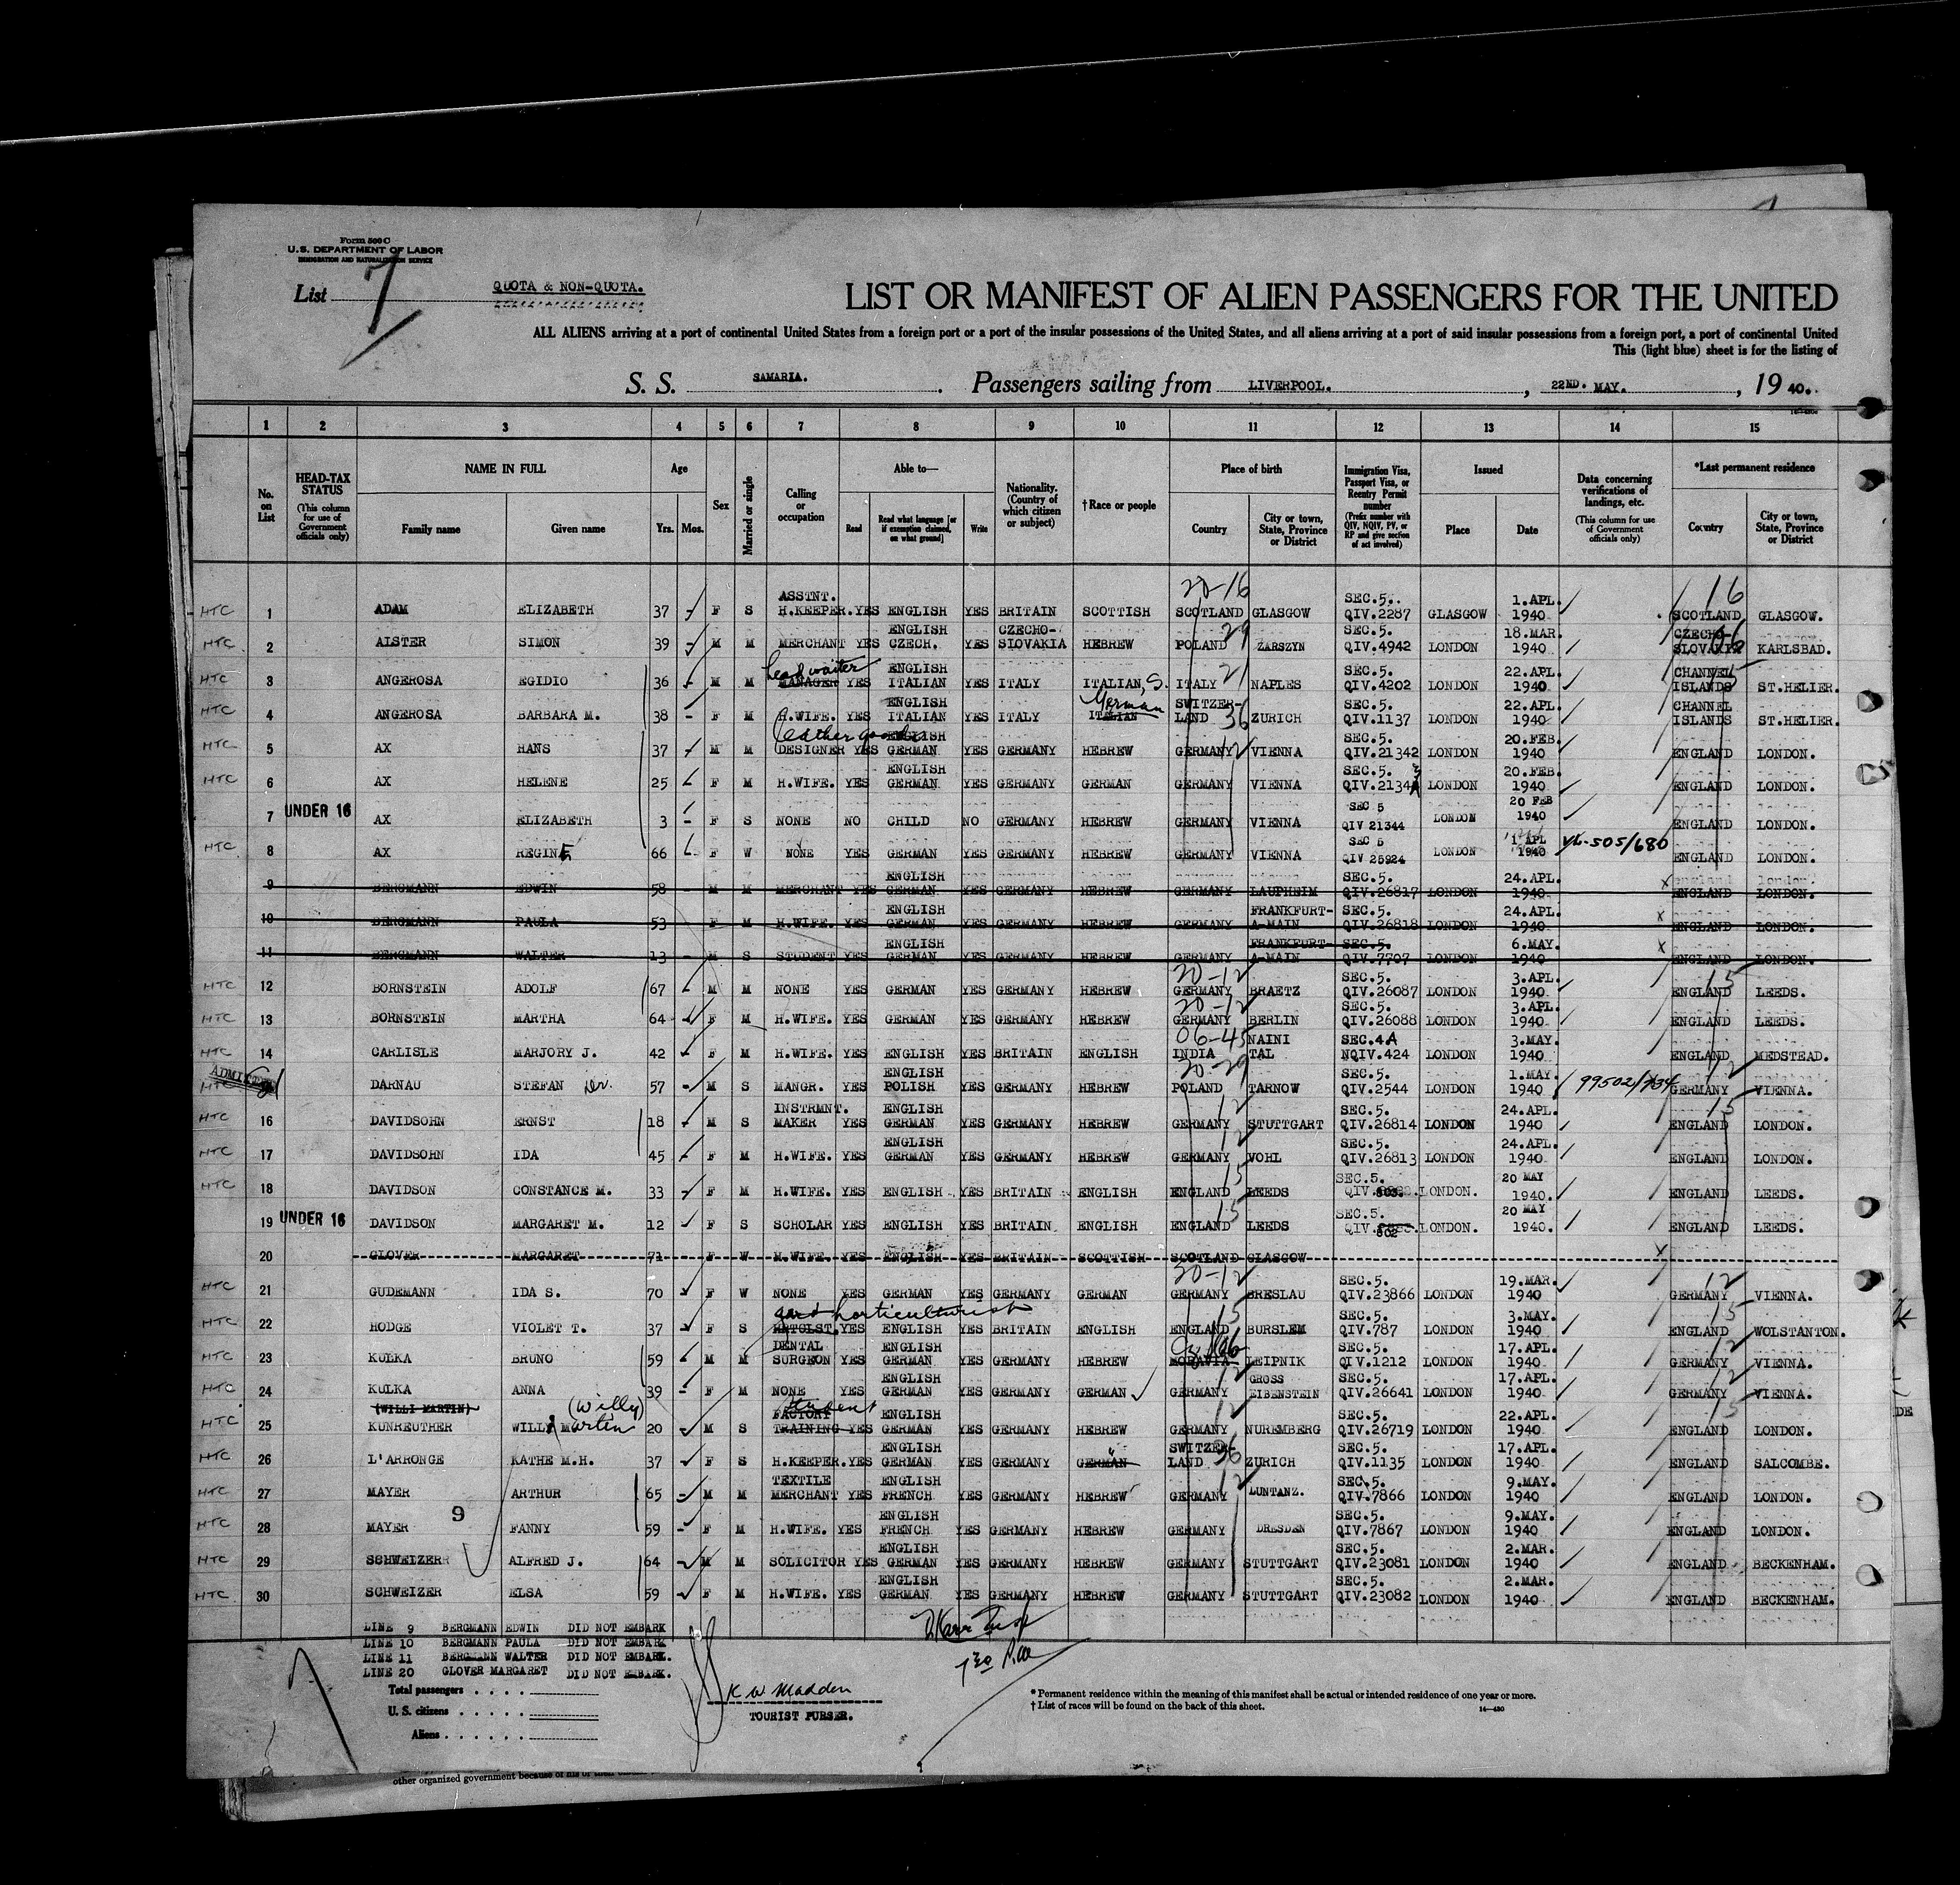 Form 500 C
U.S. DEPARTMENT OF LABOR
IMMIGRATION AND NATURALIZATION SERVICE
List 7
QUOTA & NON-QUOTA.
LIST OR MANIFEST OF ALIEN PASSENGERS FOR THE UNITED
ALL ALIENS arriving at a port of continental United States from a foreign port or a port of the insular possessions of the United States, and all aliens arriving at a port of said insular possessions from a foreign port, a port of continental United
This (light blue) sheet is for the listing of
S. S. SAMARIA. Passengers sailing from LIVERPOOL. , 22ND. MAY. , 19 40.
1 2 3 4 5 6 7 8 9 10 11 12 13 14 15
No. on List
HEAD-TAX STATUS (This column for use of Government officials only)
NAME IN FULL Family name Given name
Age Yrs. Mos.
Sex
Married or single
Calling or occupation
Able to— Read Read what language [or if exemption claimed, on what ground] Write
Nationality. (Country of which citizen or subject)
† Race or people
Place of birth Country City or town, State, Province or District
Immigration Visa, Passport Visa, or Reentry Permit number (Prefix number with QIV, NQIV, PV, or RP and give section of act involved)
Issued Place Date
Data concerning verifications of landings, etc. (This column for use of Government officials only)
*Last permanent residence Country City or town, State, Province or District
HTC 1 ADAM ELIZABETH 37 - F S ASSTNT. H.KEEPER. YES ENGLISH YES BRITAIN SCOTTISH 20-16 SCOTLAND GLASGOW SEC.5. QIV.2287 GLASGOW 1.APL. 1940 16 SCOTLAND GLASGOW.
HTC 2 ALSTER SIMON 39 M M MERCHANT YES ENGLISH CZECH. YES CZECHO-SLOVAKIA HEBREW POLAND 29 ZARSZYN SEC.5. QIV.4942 LONDON 18.MAR. 1940 CZECHO-SLOVAKIA KARLSBAD.
HTC 3 ANGEROSA EGIDIO 36 M M head waiter MANAGER YES ENGLISH ITALIAN YES ITALY ITALIAN, S. ITALY 21 NAPLES SEC.5. QIV.4202 LONDON 22.APL. 1940 CHANNEL ISLANDS 15 ST.HELIER.
HTC 4 ANGEROSA BARBARA M. 38 - F M H.WIFE. YES ENGLISH ITALIAN YES ITALY German ITALIAN SWITZER-LAND 36 ZURICH SEC.5. QIV.1137 LONDON 22.APL. 1940 CHANNEL ISLANDS ST.HELIER.
HTC 5 AX HANS 37 - M M leather goods DESIGNER YES ENGLISH GERMAN YES GERMANY HEBREW GERMANY 12 VIENNA SEC.5. QIV.21342 LONDON 20.FEB. 1940 ENGLAND LONDON.
HTC 6 AX HELENE 25 F M H.WIFE. YES ENGLISH GERMAN YES GERMANY GERMAN GERMANY VIENNA SEC.5. QIV.2134 3 LONDON 20.FEB. 1940 ENGLAND LONDON.
7 UNDER 16 AX ELIZABETH 3 - F S NONE NO CHILD NO GERMANY HEBREW GERMANY VIENNA SEC 5 QIV 21344 LONDON 20 FEB 1940 ENGLAND LONDON.
HTC 8 AX REGINE 66 F W NONE YES GERMAN YES GERMANY HEBREW GERMANY VIENNA SEC 5 QIV 25924 LONDON 1 APL 1940 VL-505/680 ENGLAND LONDON.
9 BERGMANN EDWIN 58 M M MERCHANT YES ENGLISH GERMAN YES GERMANY HEBREW GERMANY LAUPHEIM SEC.5. QIV.26817 LONDON 24.APL. 1940 x ENGLAND LONDON.
10 BERGMANN PAULA 53 F M H.WIFE. YES ENGLISH GERMAN YES GERMANY HEBREW GERMANY FRANKFURT-A-MAIN SEC.5. QIV.26818 LONDON 24.APL. 1940 x ENGLAND LONDON.
11 BERGMANN WALTER 13 - M S STUDENT YES ENGLISH GERMAN YES GERMANY HEBREW GERMANY FRANKFURT-A-MAIN SEC.5. QIV.7707 LONDON 6.MAY. 1940 x ENGLAND LONDON.
HTC 12 BORNSTEIN ADOLF 67 M M NONE YES GERMAN YES GERMANY HEBREW 20-12 GERMANY BRAETZ SEC.5. QIV.26087 LONDON 3.APL. 1940 15 ENGLAND LEEDS.
HTC 13 BORNSTEIN MARTHA 64 F M H.WIFE. YES GERMAN YES GERMANY HEBREW 20-12 GERMANY BERLIN SEC.5. QIV.26088 LONDON 3.APL. 1940 ENGLAND LEEDS.
HTC 14 CARLISLE MARJORY J. 42 F M H.WIFE. YES ENGLISH YES BRITAIN ENGLISH 06-45 INDIA NAINI TAL SEC.4A NQIV.424 LONDON 3.MAY. 1940 ENGLAND MEDSTEAD.
ADMITTED HTC DARNAU STEFAN Dr. 57 - M S MANGR. YES ENGLISH POLISH YES GERMANY HEBREW 20-29 POLAND TARNOW SEC.5. QIV.2544 LONDON 1.MAY. 1940 99502/734 12 GERMANY VIENNA.
HTC 16 DAVIDSOHN ERNST 18 M S INSTRMNT. MAKER YES ENGLISH GERMAN YES GERMANY HEBREW 12 GERMANY STUTTGART SEC.5. QIV.26814 LONDON 24.APL. 1940 15 ENGLAND LONDON.
HTC 17 DAVIDSOHN IDA 45 F M H.WIFE. YES ENGLISH GERMAN YES GERMANY HEBREW 12 GERMANY VOHL SEC.5. QIV.26813 LONDON 24.APL. 1940 ENGLAND LONDON.
HTC 18 DAVIDSON CONSTANCE M. 33 F M H.WIFE. YES ENGLISH YES BRITAIN ENGLISH 15 ENGLAND LEEDS SEC.5. QIV. 803. LONDON. 20 MAY 1940. ENGLAND LEEDS.
19 UNDER 16 DAVIDSON MARGARET M. 12 F S SCHOLAR YES ENGLISH YES BRITAIN ENGLISH 15 ENGLAND LEEDS SEC.5. QIV. 802 LONDON. 20 MAY 1940. ENGLAND LEEDS.
20 GLOVER MARGARET 71 F W H.WIFE. YES ENGLISH YES BRITAIN SCOTTISH SCOTLAND GLASGOW x
HTC 21 GUDEMANN IDA S. 70 F W NONE YES GERMAN YES GERMANY GERMAN 20-12 GERMANY BRESLAU SEC.5. QIV.23866 LONDON 19.MAR. 1940 12 GERMANY VIENNA.
HTC 22 HODGE VIOLET T. 37 F S horticulturist YES ENGLISH YES BRITAIN ENGLISH 15 ENGLAND BURSLEM SEC.5. QIV.787 LONDON 3.MAY. 1940 15 ENGLAND WOLSTANTON.
HTC 23 KULKA BRUNO 59 M M DENTAL SURGEON YES ENGLISH GERMAN YES GERMANY HEBREW MORAVIA LEIPNIK SEC.5. QIV.1212 LONDON 17.APL. 1940 12 GERMANY VIENNA.
HTC 24 KULKA ANNA 39 - F M NONE YES ENGLISH GERMAN YES GERMANY GERMAN 12 GERMANY GROSS EIBENSTEIN SEC.5. QIV.26641 LONDON 17.APL. 1940 12 GERMANY VIENNA.
HTC 25 (WILLI MARTIN) KUNREUTHER (Willy) WILLY Martin 20 M S Student FACTORY TRAINING YES ENGLISH GERMAN YES GERMANY HEBREW 12 GERMANY NUREMBERG SEC.5. QIV.26719 LONDON 22.APL. 1940 15 ENGLAND LONDON.
HTC 26 L'ARRONGE KATHE M.H. 37 F S H.KEEPER. YES ENGLISH GERMAN YES GERMANY " GERMAN SWITZER-LAND 36 ZURICH SEC.5. QIV.1135 LONDON 17.APL. 1940 ENGLAND SALCOMBE.
HTC 27 MAYER ARTHUR 65 M M TEXTILE MERCHANT YES ENGLISH FRENCH YES GERMANY HEBREW 12 GERMANY LUNTANZ. SEC.5. QIV.7866 LONDON 9.MAY. 1940 ENGLAND LONDON.
HTC 28 MAYER 9 FANNY 59 - F M H.WIFE. YES ENGLISH FRENCH YES GERMANY HEBREW GERMANY DRESDEN SEC.5. QIV.7867 LONDON 9.MAY. 1940 ENGLAND LONDON.
HTC 29 SCHWEIZER ALFRED J. 64 M M SOLICITOR YES ENGLISH GERMAN YES GERMANY HEBREW GERMANY STUTTGART SEC.5. QIV.23081 LONDON 2.MAR. 1940 ENGLAND BECKENHAM.
HTC 30 SCHWEIZER ELSA 59 F M H.WIFE. YES ENGLISH GERMAN YES GERMANY HEBREW GERMANY STUTTGART SEC.5. QIV.23082 LONDON 2.MAR. 1940 ENGLAND BECKENHAM.
LINE 9 BERGMANN EDWIN DID NOT EMBARK
LINE 10 BERGMANN PAULA DID NOT EMBARK
LINE 11 BERGMANN WALTER DID NOT EMBARK.
LINE 20 GLOVER MARGARET DID NOT EMBARK.
Total passengers
U. S. citizens
Aliens
K W Madden
TOURIST PURSER.
* Permanent residence within the meaning of this manifest shall be actual or intended residence of one year or more.
† List of races will be found on the back of this sheet.
14—430
other organized government because of his or their
DE